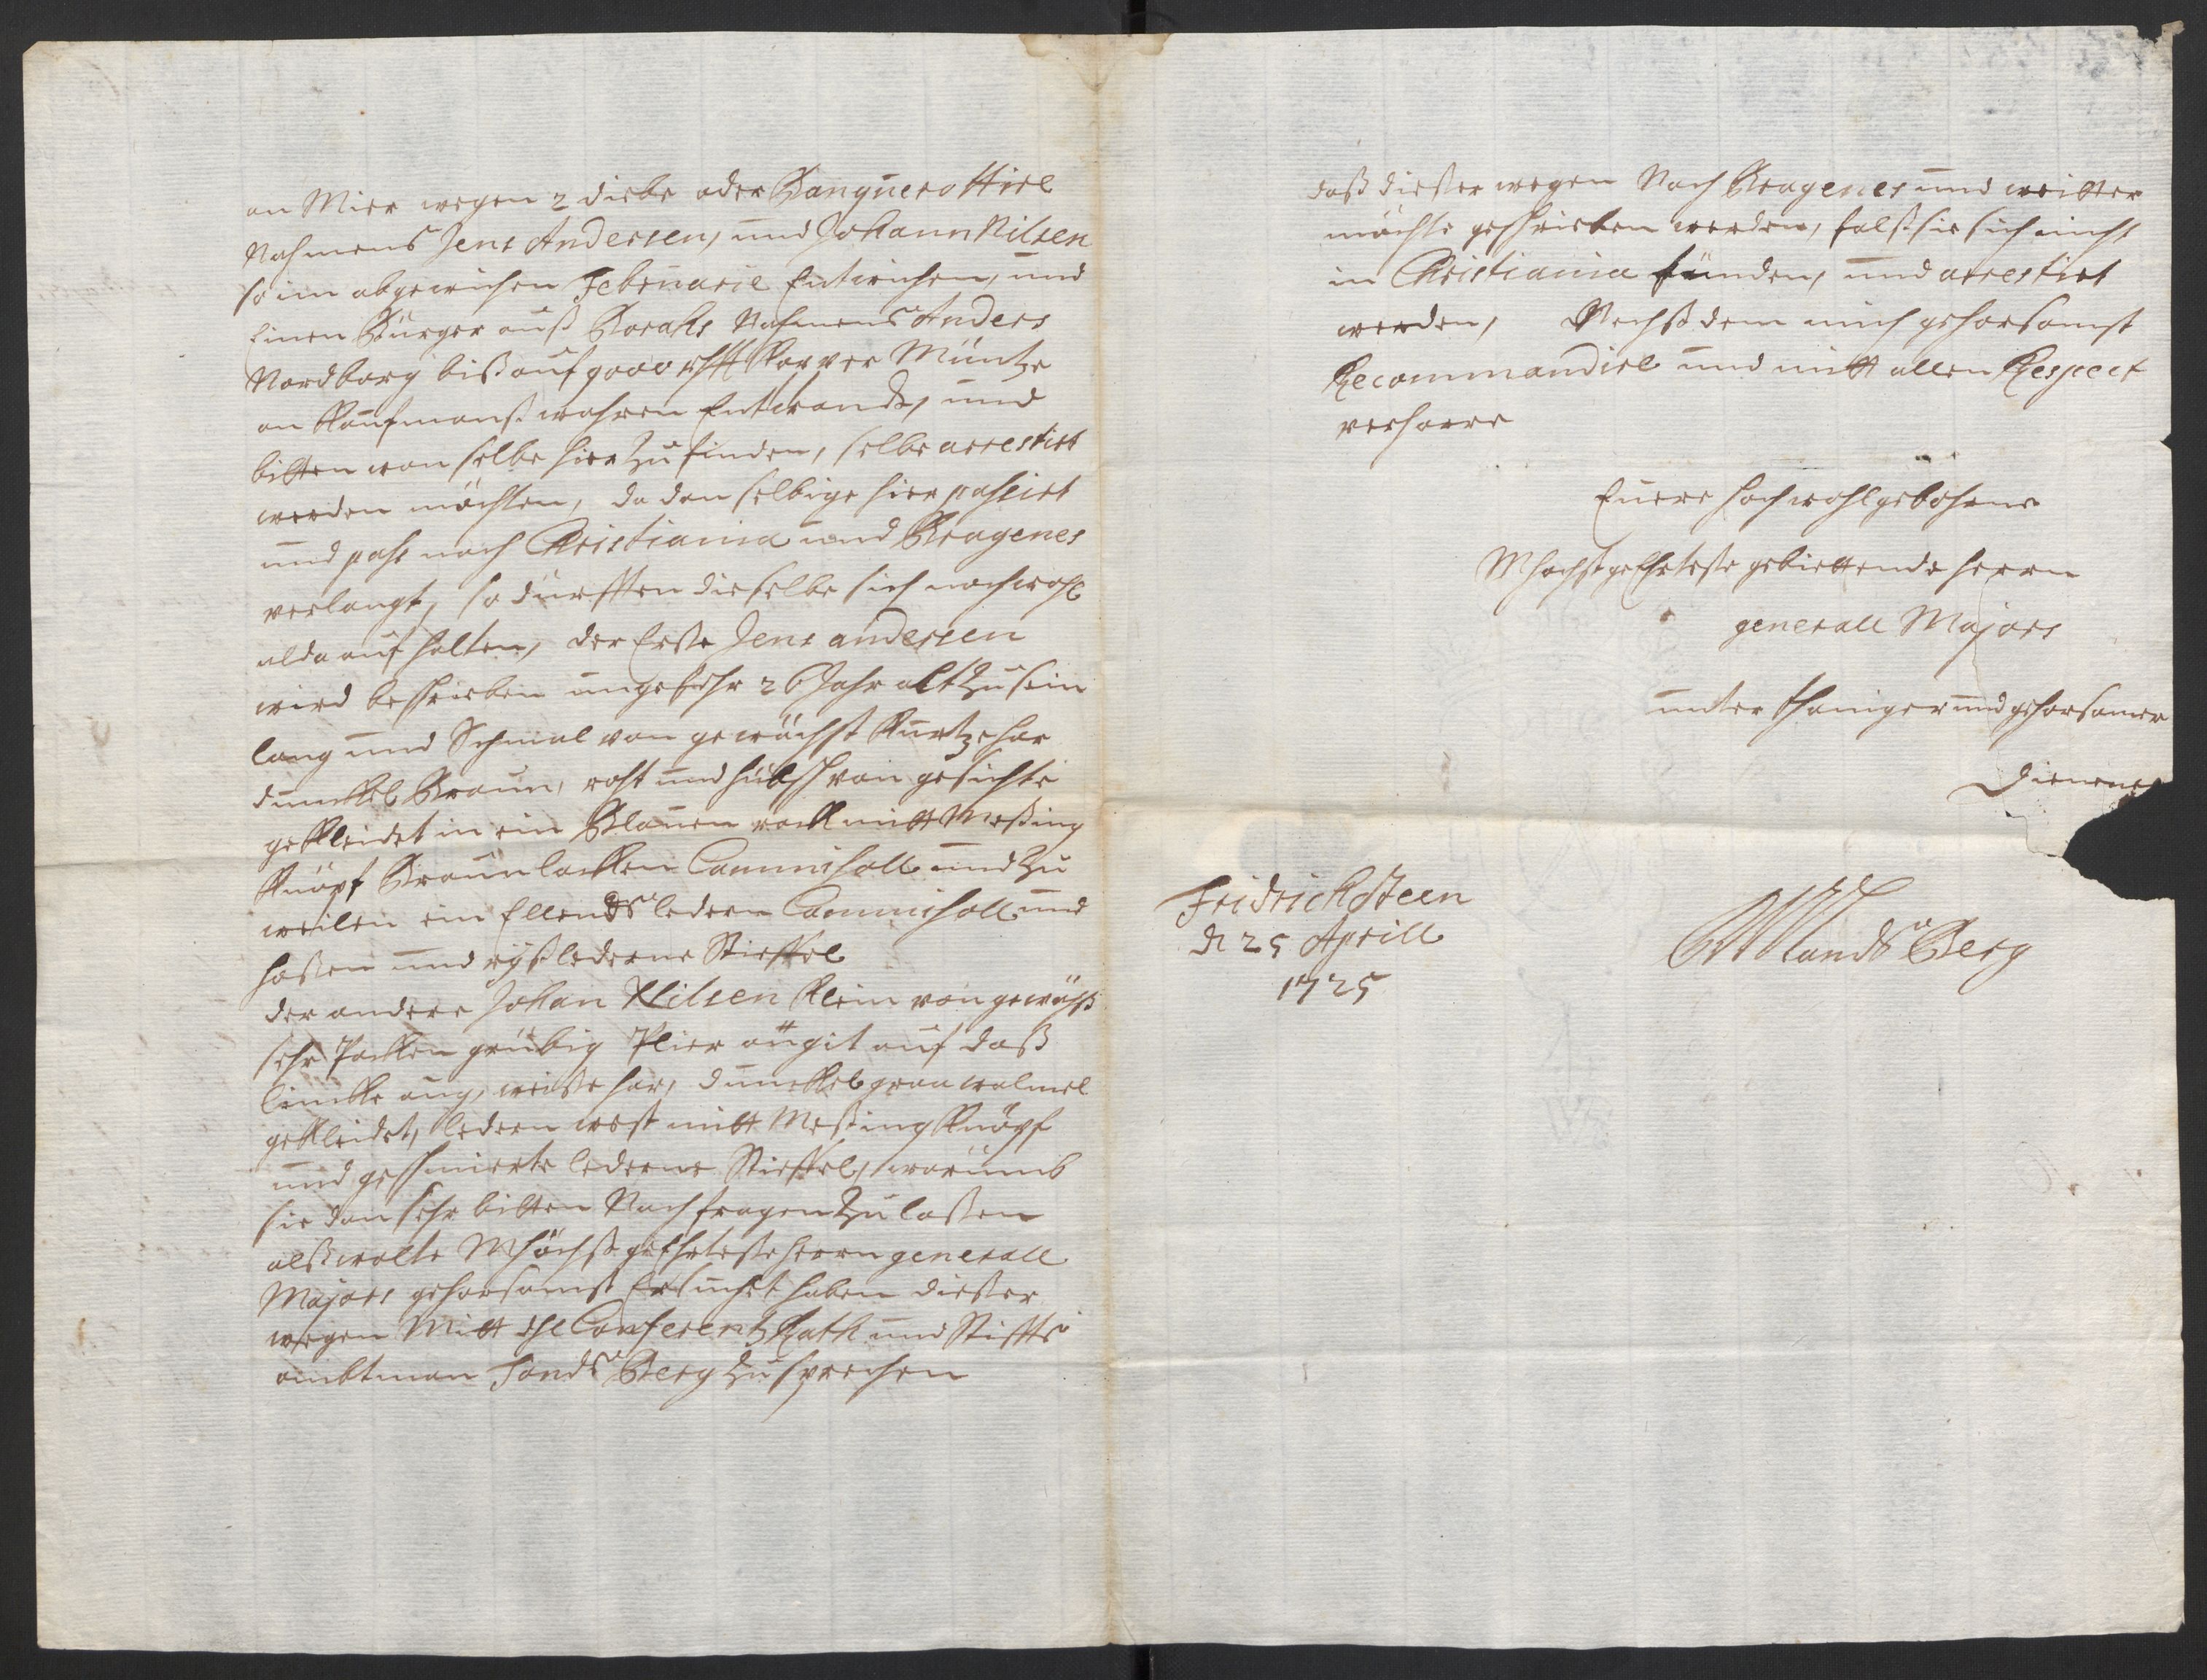 an Mier wegen 2 diebe oder Banquerottirl
Nahmens Jens Andersen, und Johann Nilsen
so im abgewichen Februarie Entwichen, und
Einen Bürger auß Borahs Nahmens Anders
Nordborg biß auf 9000 Kopper Müntze
an Kaufmanß wahren Entwandt, und
bitten wan selbe hier zu finden, selbe arrestirt
werden möchten, da dan selbige hier passirt
und pass nach Christiania und Bragenes
verlangt, so dürfften dieselbe sich noch wohl
alda auf halten, der Erste Jens andersen
wird beschrieben ungefehr 26 Jahr alt zu sein
lang und Schmal von gewächst Kurtze har
dunckel Braun, roht und hübsch von gesichte
gekleidet in ein Blauen rock mitt Meßing
Knöpf Braun lacken Cammisoll und zu
weilen ein Ellends ledern Cammisoll und
hosen und rÿßlederne Stieffel
der andere Johan Nilsen klein von gewächs
sehr Pocken grübig Plier äugit auf daß
lincke aug, weiße har, dunckel grau walmel
gekleidet, ledern west mitt Meßing Knöpf
und geschmierte lederne Stieffel, warumb
sie dan sehr bitten Nach fragen zu laßen
alß wolte Mhöchst geEhrteste Herrn generall
Majors gehorsamst Ersuchet haben dießer
wegen Mitt Conferentz Rath und Stiffts
ambtman Tonds Berg zu sprechen
daß dießer wegen Nach Bragenes und weitter
möchte geschrieben werden, falß sie sich nicht
in Christiania fünden, und arrestirt
werden, Nechst dem mich gehorsamst
Recommandire und mitt allen Respect
verharre
Euere Hoch wohlgebohrne
Mhochst geEhrteste gebiettende Herrn
generall Majors
unterthaniger und gehorsamer
Diener
Fridrichsteen
d 25 Aprill
1725
Landsberg